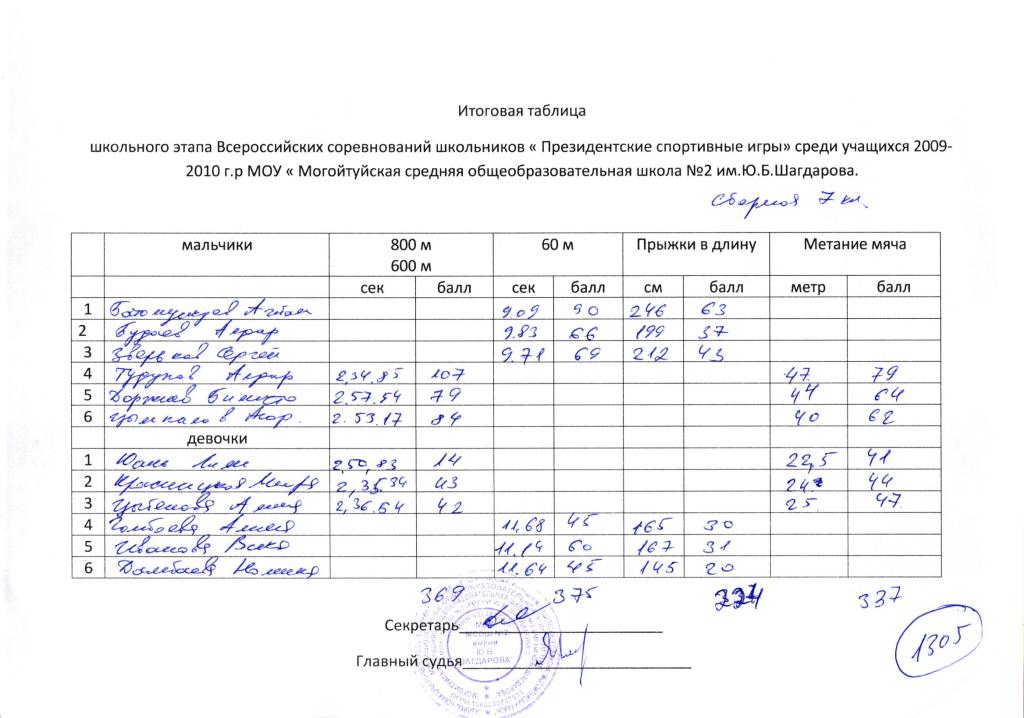 Итоговая таблица
школьного этапа Всероссийских соревнований школьников « Президентские спортивные игры» среди учащихся 2009-
2010 г.р МОУ « Могойтуйская средняя общеобразовательная школа №2 им.Ю.Б.Шагдарова.
Сборная 7 кл.
мальчики 800 м 60 м Прыжки в длину Метание мяча
600 м
сек балл сек балл см балл метр балл
1 9.09 90 246 63
2 9.83 66 199 37
3 Зверьков Сергей 9.71 69 212 43
4 2,34.85 107 47 79
5 2.57.54 79 44 64
6 2.53.17 84 40 62
девочки
1 2,50,83 14 22,5 41
2 2,35.34 43 24 44
3 2,36.54 42 25 47
4 11,68 45 165 30
5 Иванова Вика 11,14 60 167 31
6 11.64 45 145 20
369 375 337
Секретарь
Главный судья
1305